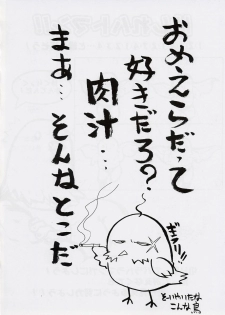 おめえらだって
好きだろ?
肉汁…
まぁ…そんなとこだ
ギョフリ!!
そいやいたな
こんな鳥